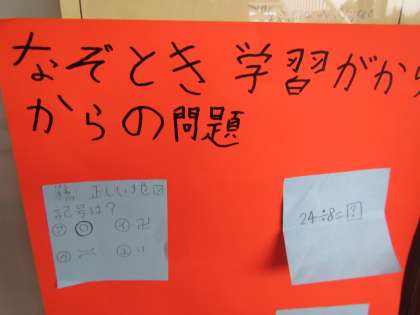 なぞとき 学習がから
からの問題
正しいけ
記号は?
ア ◎ イ 卍
ウ エ
24÷8=?